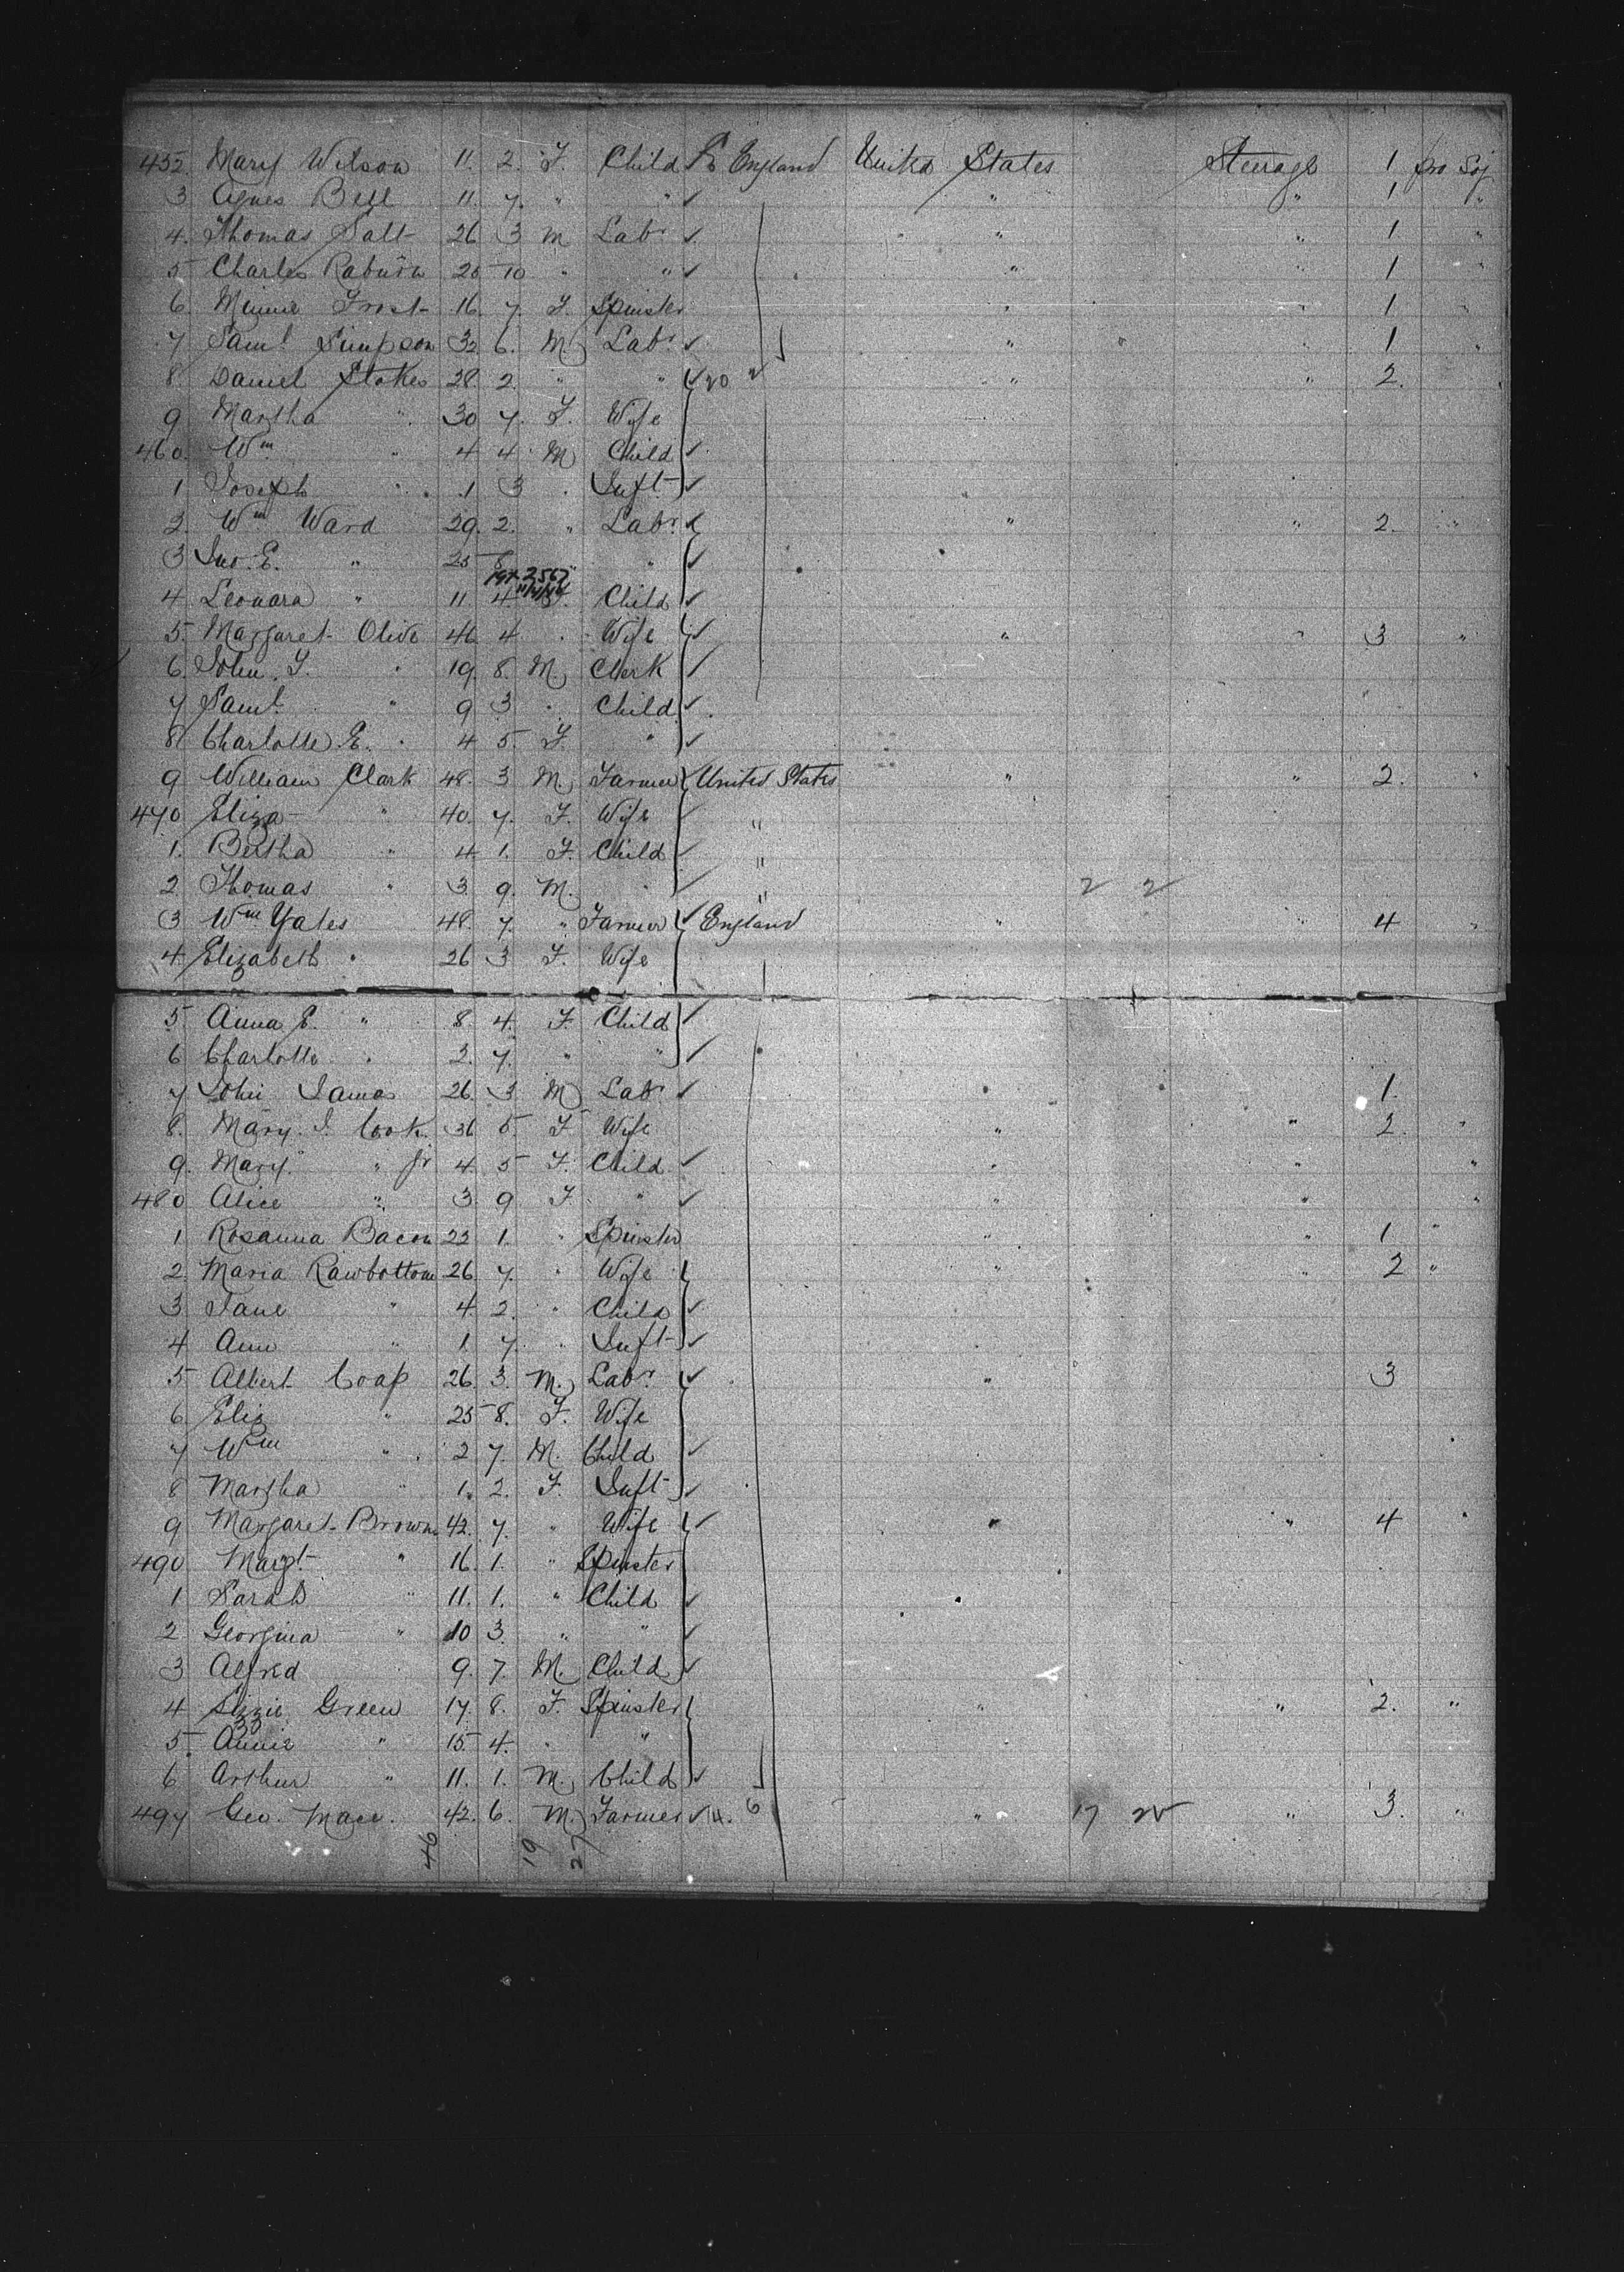 452. Mary Wilson 11. 2. F. Child England United States Steerage 1 pro Soj
3 Agnes Bell 11. 7. " " " " 1 "
4. Thomas Salt 26 3 M Labr " " 1 "
5 Charles 25 10 " " " " 1 "
6 Minnie Frost 16. 7. F. Spinster " " 1 "
7 Saml Simpson 32 6. M. Labr " " 1 "
8 Daniel Stokes 28 2. " " 20 " " 2.
9 Martha " 30 7. F. Wife
460. Wm " 4 4 M Child
1 Joseph " 1 3 " Inft
2. Wm Ward 29. 2. " Labr " " 2. "
3 Jno. E. " 25 8 " "
4. Leonara " 11 4 F. Child
5. Margaret Olive 46 4 " Wife " " 3 "
6. John. T. " 19. 8. M. Clerk
7 Saml " 9 3 " Child
8 Charlotte. E. " 4 5 F. "
9 William Clark 48. 3 M. Farmer United States " " 2. "
470 Eliza " 40. 7. F. Wife "
1. Bertha " 4 1. F. Child "
2 Thomas " 3 9. M. " " 2 2
3 Wm Yates 48. 7. " Farmer England " " 4 "
4. Elizabeth " 26 3 F. Wife
5. Anna E. " 8. 4. F. Child
6 Charlotte " 2. 7. " "
7 John James 26. 3 M Labr " 1.
8. Mary. J. Cook. 36 5 F Wife " " 2. "
9. Mary. " Jr 4. 5 F. Child " " "
480 Alice " 3. 9 F. " " " "
1 Rosanna Bacon 22 1. " Spinster " " 1 "
2. Maria Rawbottom 26. 7. " Wife " " 2 "
3 Jane " 4. 2. " Child
4 Ann " 1. 7. " Inft
5 Albert Coap 26. 3. M. Labr " 3
6 Eliz " 25 8. F. Wife
7 Wm " 2 7. M. Child
8 Martha " 1. 2. F. Inft
9 Margaret Brown 42. 7. " Wife " " 4 "
490 Margt " 16. 1. " Spinster
1 Sarah " 11. 1. " Child
2 Georgina " 10 3. " "
3 Alfred 9. 7. M. Child
4 Lizzie Green 17. 8. F. Spinster " " 2. "
5. Annie " 15. 4. " "
6 Arthur " 11. 1. M. Child
497 Geo. Mace. 42. 6. M. Farmer 6 " 17 " 3. "
46 19 27